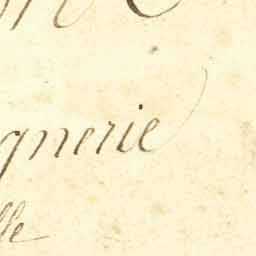 gnerie
lle